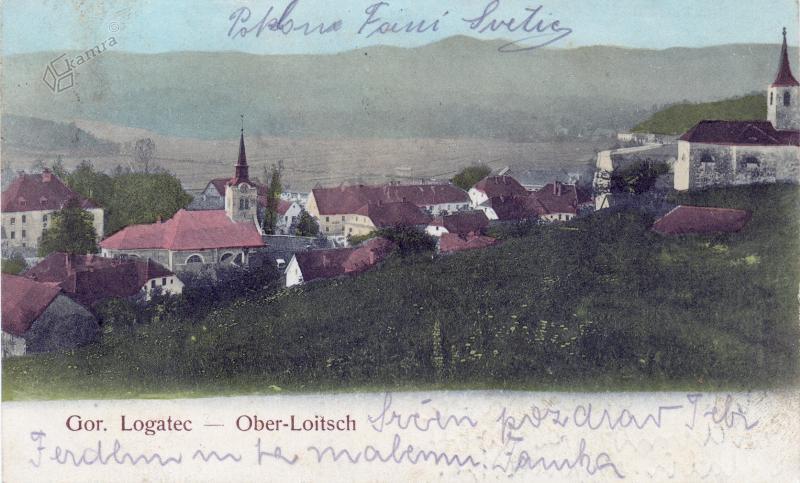 Poklona Fani Svetic
kamra ©
Gor. Logatec — Ober-Loitsch
Srčen pozdrav Tebi
Ferdlnu in ta malemu. Fanika